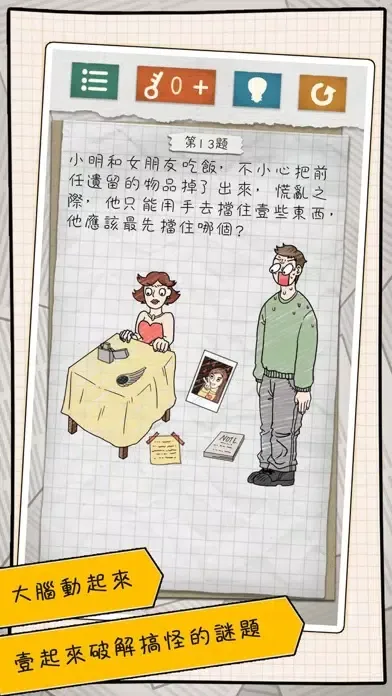 0 +
第13題
小明和女朋友吃飯，不小心把前
任遺留的物品掉了出來，慌亂之
際，他只能用手去擋住壹些東西，
他應該最先擋住哪個？
大腦動起來
壹起來破解搞怪的謎題